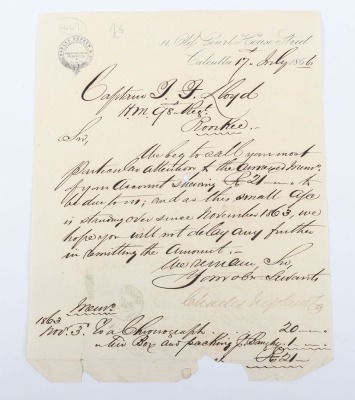 11 Old Court House Street
Calcutta 17th July 1866
Captain T. F. Lloyd
H.M. 98th Regt.
Roorkee
Sir,
We beg to call your most
particular attention to the annexed Memo
of your Account shewing Rs 21
as due to us; and as this small
is standing over since November 1863, we
hope you will not delay any further
in remitting the Amount.
We remain, Sir,
Your obt. Servants
Charles
Memo
1863
Nov. 3. To a Chronograph 20
Tin Box and packing & 1
Rs 21